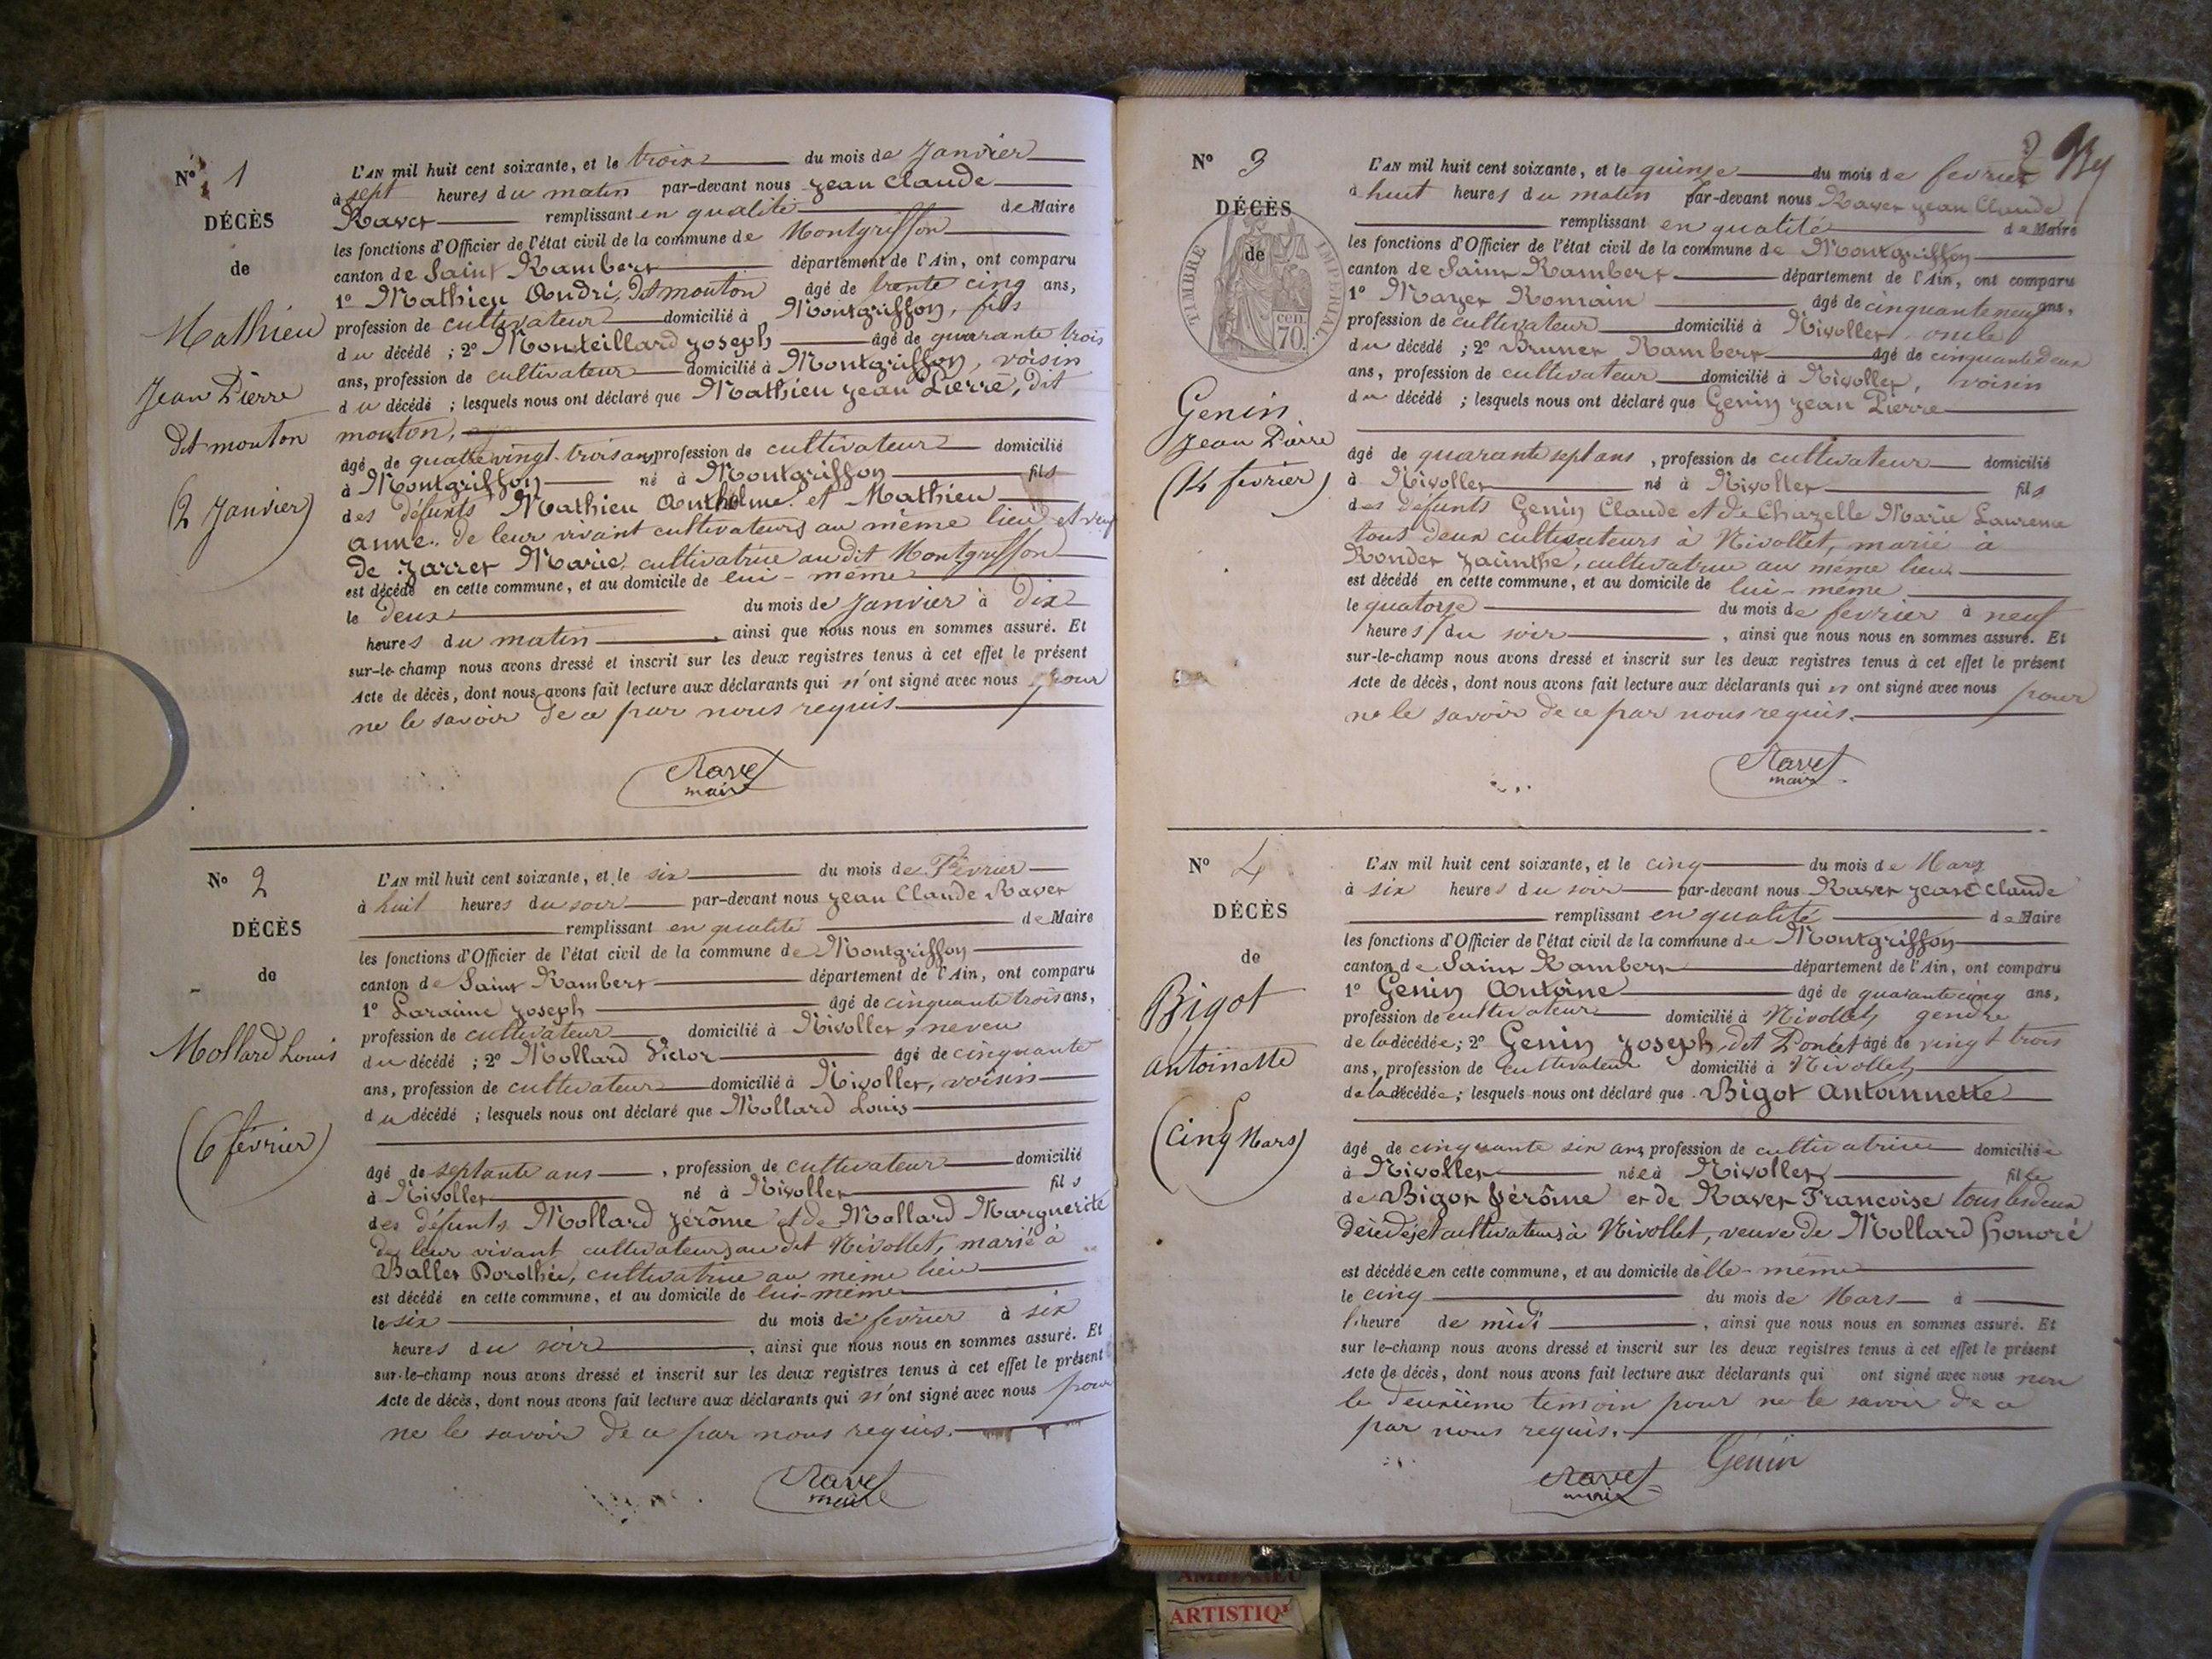 N° 1
DÉCÈS
de
Mathieu
Jean Pierre
dit mouton
(2 Janvier)
L'AN mil huit cent soixante, et le trois du mois de Janvier
à sept heures du matin par-devant nous Jean Claude
Ravet remplissant en qualité de Maire
les fonctions d'Officier de l'état civil de la commune de Montgriffon
canton de Saint Rambert département de l'Ain, ont comparu
1° Mathieu André, dit mouton âgé de trente cinq ans,
profession de cultivateur domicilié à Montgriffon, fils
du décédé ; 2° Monteillard Joseph âgé de quarante trois
ans, profession de cultivateur domicilié à Montgriffon, voisin
du décédé ; lesquels nous ont déclaré que Mathieu Jean Pierre, dit
mouton,
âgé de quatre vingt-trois ans, profession de cultivateur domicilié
à Montgriffon né à Montgriffon fils
des défunts Mathieu Anthelme et Mathieu
anne. de leur vivant cultivateurs au même lieu, et veuf
de Jarret Marie, cultivatrice au dit Montgriffon
est décédé en cette commune, et au domicile de lui-même
le deux du mois de Janvier à dix
heures du matin, ainsi que nous nous en sommes assuré. Et
sur-le-champ nous avons dressé et inscrit sur les deux registres tenus à cet effet le présent
Acte de décès, dont nous avons fait lecture aux déclarants qui n'ont signé avec nous pour
ne le savoir de ce par nous requis.
Ravet
maire
N° 2
DÉCÈS
de
Mollard Louis
(6 février)
L'AN mil huit cent soixante, et le six du mois de Février
à huit heures du soir par-devant nous Jean Claude Ravet
remplissant en qualité de Maire
les fonctions d'Officier de l'état civil de la commune de Montgriffon
canton de Saint Rambert département de l'Ain, ont comparu
1° Laraime Joseph âgé de cinquante trois ans,
profession de cultivateur domicilié à Nivollet, neveu
du décédé ; 2° Mollard Victor âgé de cinquante
ans, profession de cultivateur domicilié à Nivollet, voisin
du décédé ; lesquels nous ont déclaré que Mollard Louis
âgé de septante ans, profession de cultivateur domicilié
à Nivollet né à Nivollet fils
des défunts Mollard Jérôme et de Mollard Marguerite
de leur vivant cultivateurs au dit Nivollet, marié à
Ballet Dorothée, cultivatrice au même lieu
est décédé en cette commune, et au domicile de lui-même
le six du mois de février à six
heures du soir, ainsi que nous nous en sommes assuré. Et
sur-le-champ nous avons dressé et inscrit sur les deux registres tenus à cet effet le présent
Acte de décès, dont nous avons fait lecture aux déclarants qui n'ont signé avec nous pour
ne le savoir de ce par nous requis.
Ravet
maire
N° 3
DÉCÈS
de
TIMBRE IMPERIAL
cen.
70
Genin
Jean Pierre
(14 février)
L'AN mil huit cent soixante, et le quinze du mois de fevrier
à huit heures du matin par-devant nous Ravet Jean Claude
remplissant en qualité de Maire
les fonctions d'Officier de l'état civil de la commune de Montgriffon
canton de Saint Rambert département de l'Ain, ont comparu
1° Mayet Romain âgé de cinquante neuf ans,
profession de cultivateur domicilié à Nivollet, oncle
du décédé ; 2° Brunet Rambert âgé de cinquante deux
ans, profession de cultivateur domicilié à Nivollet, voisin
du décédé ; lesquels nous ont déclaré que Genin Jean Pierre
âgé de quarante sept ans, profession de cultivateur domicilié
à Nivollet né à Nivollet fils
des défunts Genin Claude et de Chazelle Marie Laurence
tous deux cultivateurs à Nivollet, marié à
Rondet Jacinthe, cultivatrice au même lieu
est décédé en cette commune, et au domicile de lui-même
le quatorze du mois de fevrier à neuf
heures du soir, ainsi que nous nous en sommes assuré. Et
sur-le-champ nous avons dressé et inscrit sur les deux registres tenus à cet effet le présent
Acte de décès, dont nous avons fait lecture aux déclarants qui n'ont signé avec nous pour
ne le savoir de ce par nous requis.
Ravet
maire
N° 4
DÉCÈS
de
Bigot
antoinette
(cinq Mars)
L'AN mil huit cent soixante, et le cinq du mois de Mars
à six heures du soir par-devant nous Ravet Jean Claude
remplissant en qualité de Maire
les fonctions d'Officier de l'état civil de la commune de Montgriffon
canton de Saint Rambert département de l'Ain, ont comparu
1° Genin Antoine âgé de quarante cinq ans,
profession de cultivateur domicilié à Nivollet, gendre
de la décédée ; 2° Genin Joseph, dit Poncet âgé de vingt trois
ans, profession de cultivateur domicilié à Nivollet,
de la décédée ; lesquels nous ont déclaré que Bigot Antoinnette
âgé de cinquante six ans, profession de cultivatrice domiciliée
à Nivollet née à Nivollet fille
de Bigot Jérôme et de Ravet Francoise tous les deux
décédés et cultivateurs à Nivollet, veuve de Mollard honoré
est décédée en cette commune, et au domicile d'elle-même
le cinq du mois de Mars à
l'heure de midi, ainsi que nous nous en sommes assuré. Et
sur le-champ nous avons dressé et inscrit sur les deux registres tenus à cet effet le présent
Acte de décès, dont nous avons fait lecture aux déclarants qui ont signé avec nous non
le deuxième témoin pour ne le savoir de ce
par nous requis.
Genin
Ravet
maire
ARTISTIQ